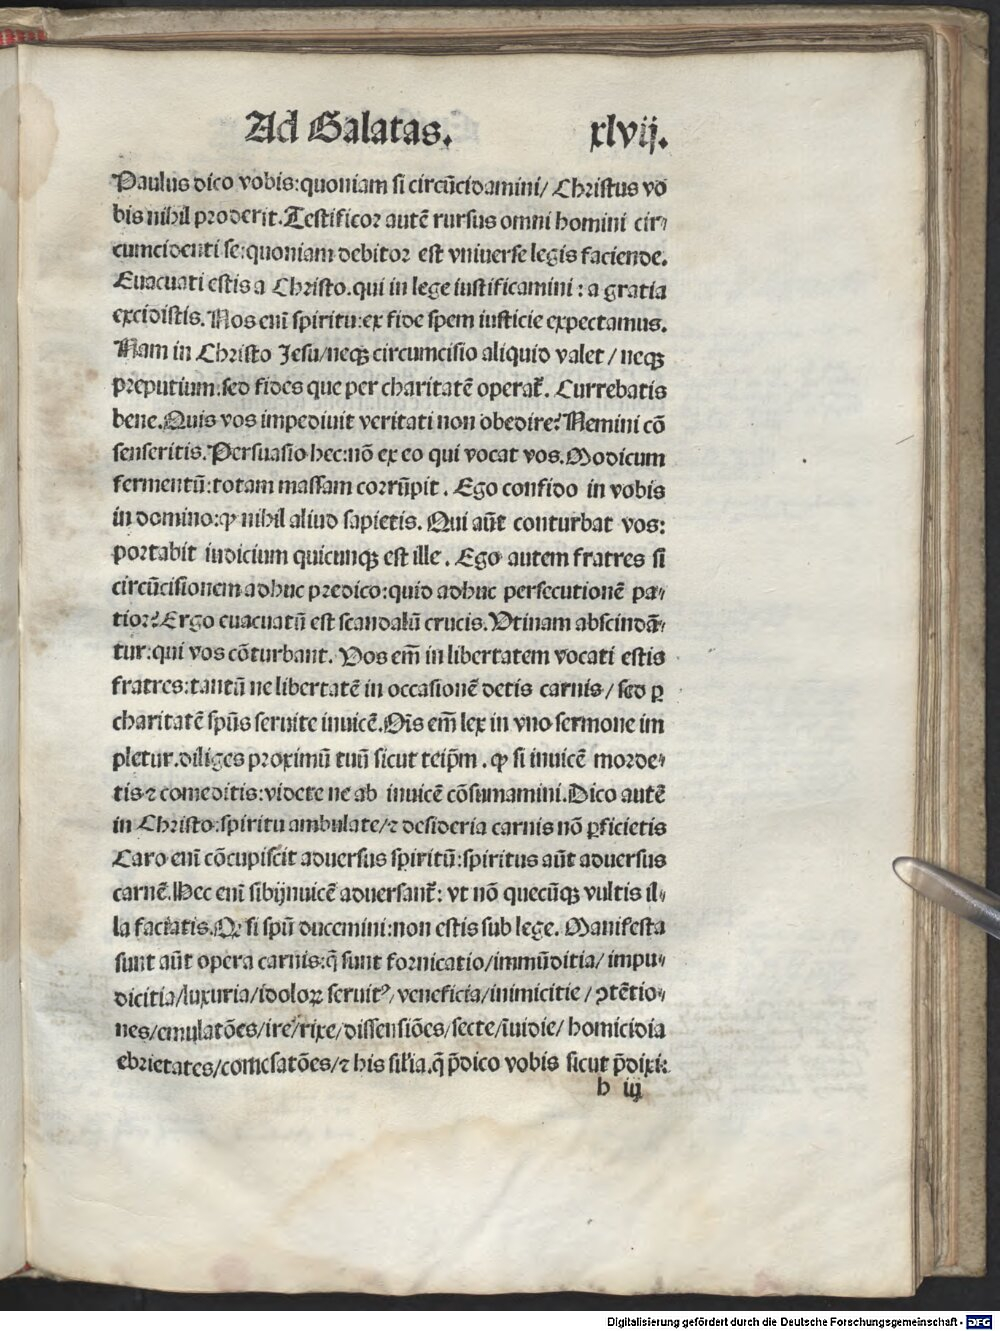 Ad Galatas. xlvij.
Paulus dico vobis:quoniam si circũcidamini/ Christus vo
bis nihil proderit.Testificor autẽ rursus omni homini cir⸗
cumcidenti se:quoniam debitor est vniuerse legis faciende.
Euacuati estis a Christo.qui in lege iustificamini : a gratia
excidistis.Nos enĩ spiritu:ex fide spem iusticie expectamus.
Nam in Christo Jesu/neqꝫ circumcisio aliquid valet / neqꝫ
preputium.sed fides que per charitatẽ operat᷑. Currebatis
bene.Quis vos impediuit veritati non obedire? Nemini cõ
senseritis.Persuasio hec:nõ ex eo qui vocat vos.Modicum
fermentũ:totam massam corrũpit . Ego confido in vobis
in domino:ꝙ nihil aliud sapietis. Qui aũt conturbat vos:
portabit iudicium quicunqꝫ est ille . Ego autem fratres si
circũcisionem adhuc predico:quid adhuc persecutionẽ pa⸗
tior?Ergo euacuatũ est scandalũ crucis.Vtinam abscindã⸗
tur:qui vos cõturbant. Vos em̃ in libertatem vocati estis
fratres:tantũ ne libertatẽ in occasionẽ detis carnis/ sed ꝑ
charitatẽ spũs seruite inuicẽ.Oĩs em̃ lex in vno sermone im
pletur.diliges proximũ tuũ sicut teip̃m . ꝙ si inuicẽ morde⸗
tis ⁊ comeditis:videte ne ab inuicẽ cõsumamini.Dico autẽ
in Christo:spiritu ambulate/⁊ desideria carnis nõ ꝑficietis
Caro enĩ cõcupiscit aduersus spiritũ:spiritus aũt aduersus
carnẽ.Hec enĩ sibijnuicẽ aduersant᷑: vt nõ quecũqꝫ vultis il⸗
la faciatis.Qꝫ si spũ ducemini:non estis sub lege. Manifesta
sunt aũt opera carnis:q̃ sunt fornicatio/immũditia/ impu⸗
dicitia/luxuria/idoloꝝ seruitꝰ/ veneficia/inimicitie / ꝯtẽtio⸗
nes/emulatões/ire/rixe/dissensiões/secte/ĩuidie/ homicidia
ebrietates/comesatões/⁊ his silĩa.q̃ p̃dico vobis sicut p̃dixi:
b iij
Digitalisierung gefördert durch die Deutsche Forschungsgemeinschaft - DFG